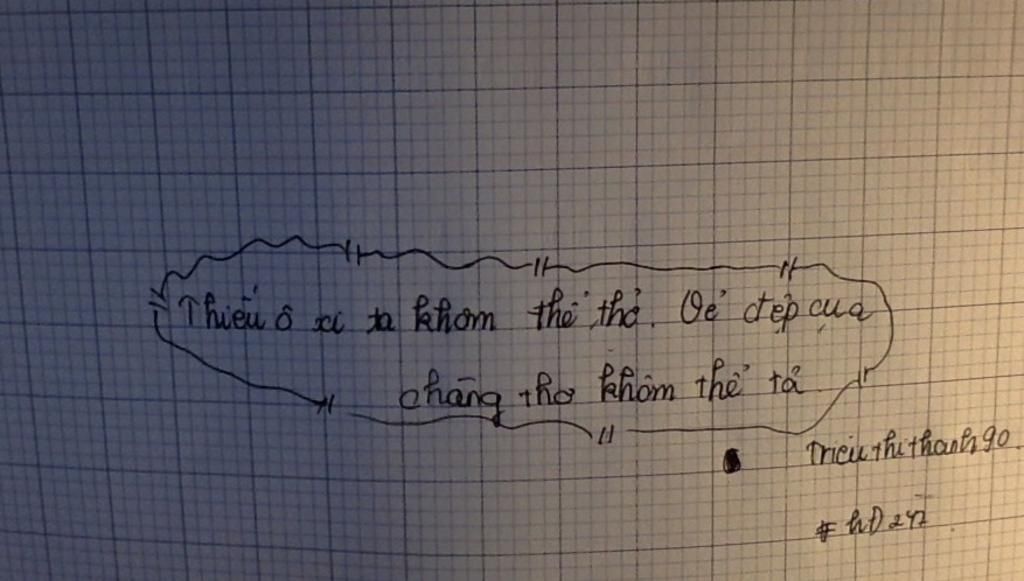 Thiếu ô xi ta khôm thể thở. Vẻ đẹp của
chàng thơ khôm thể tả
Triệu thi thanh 90
# hD247